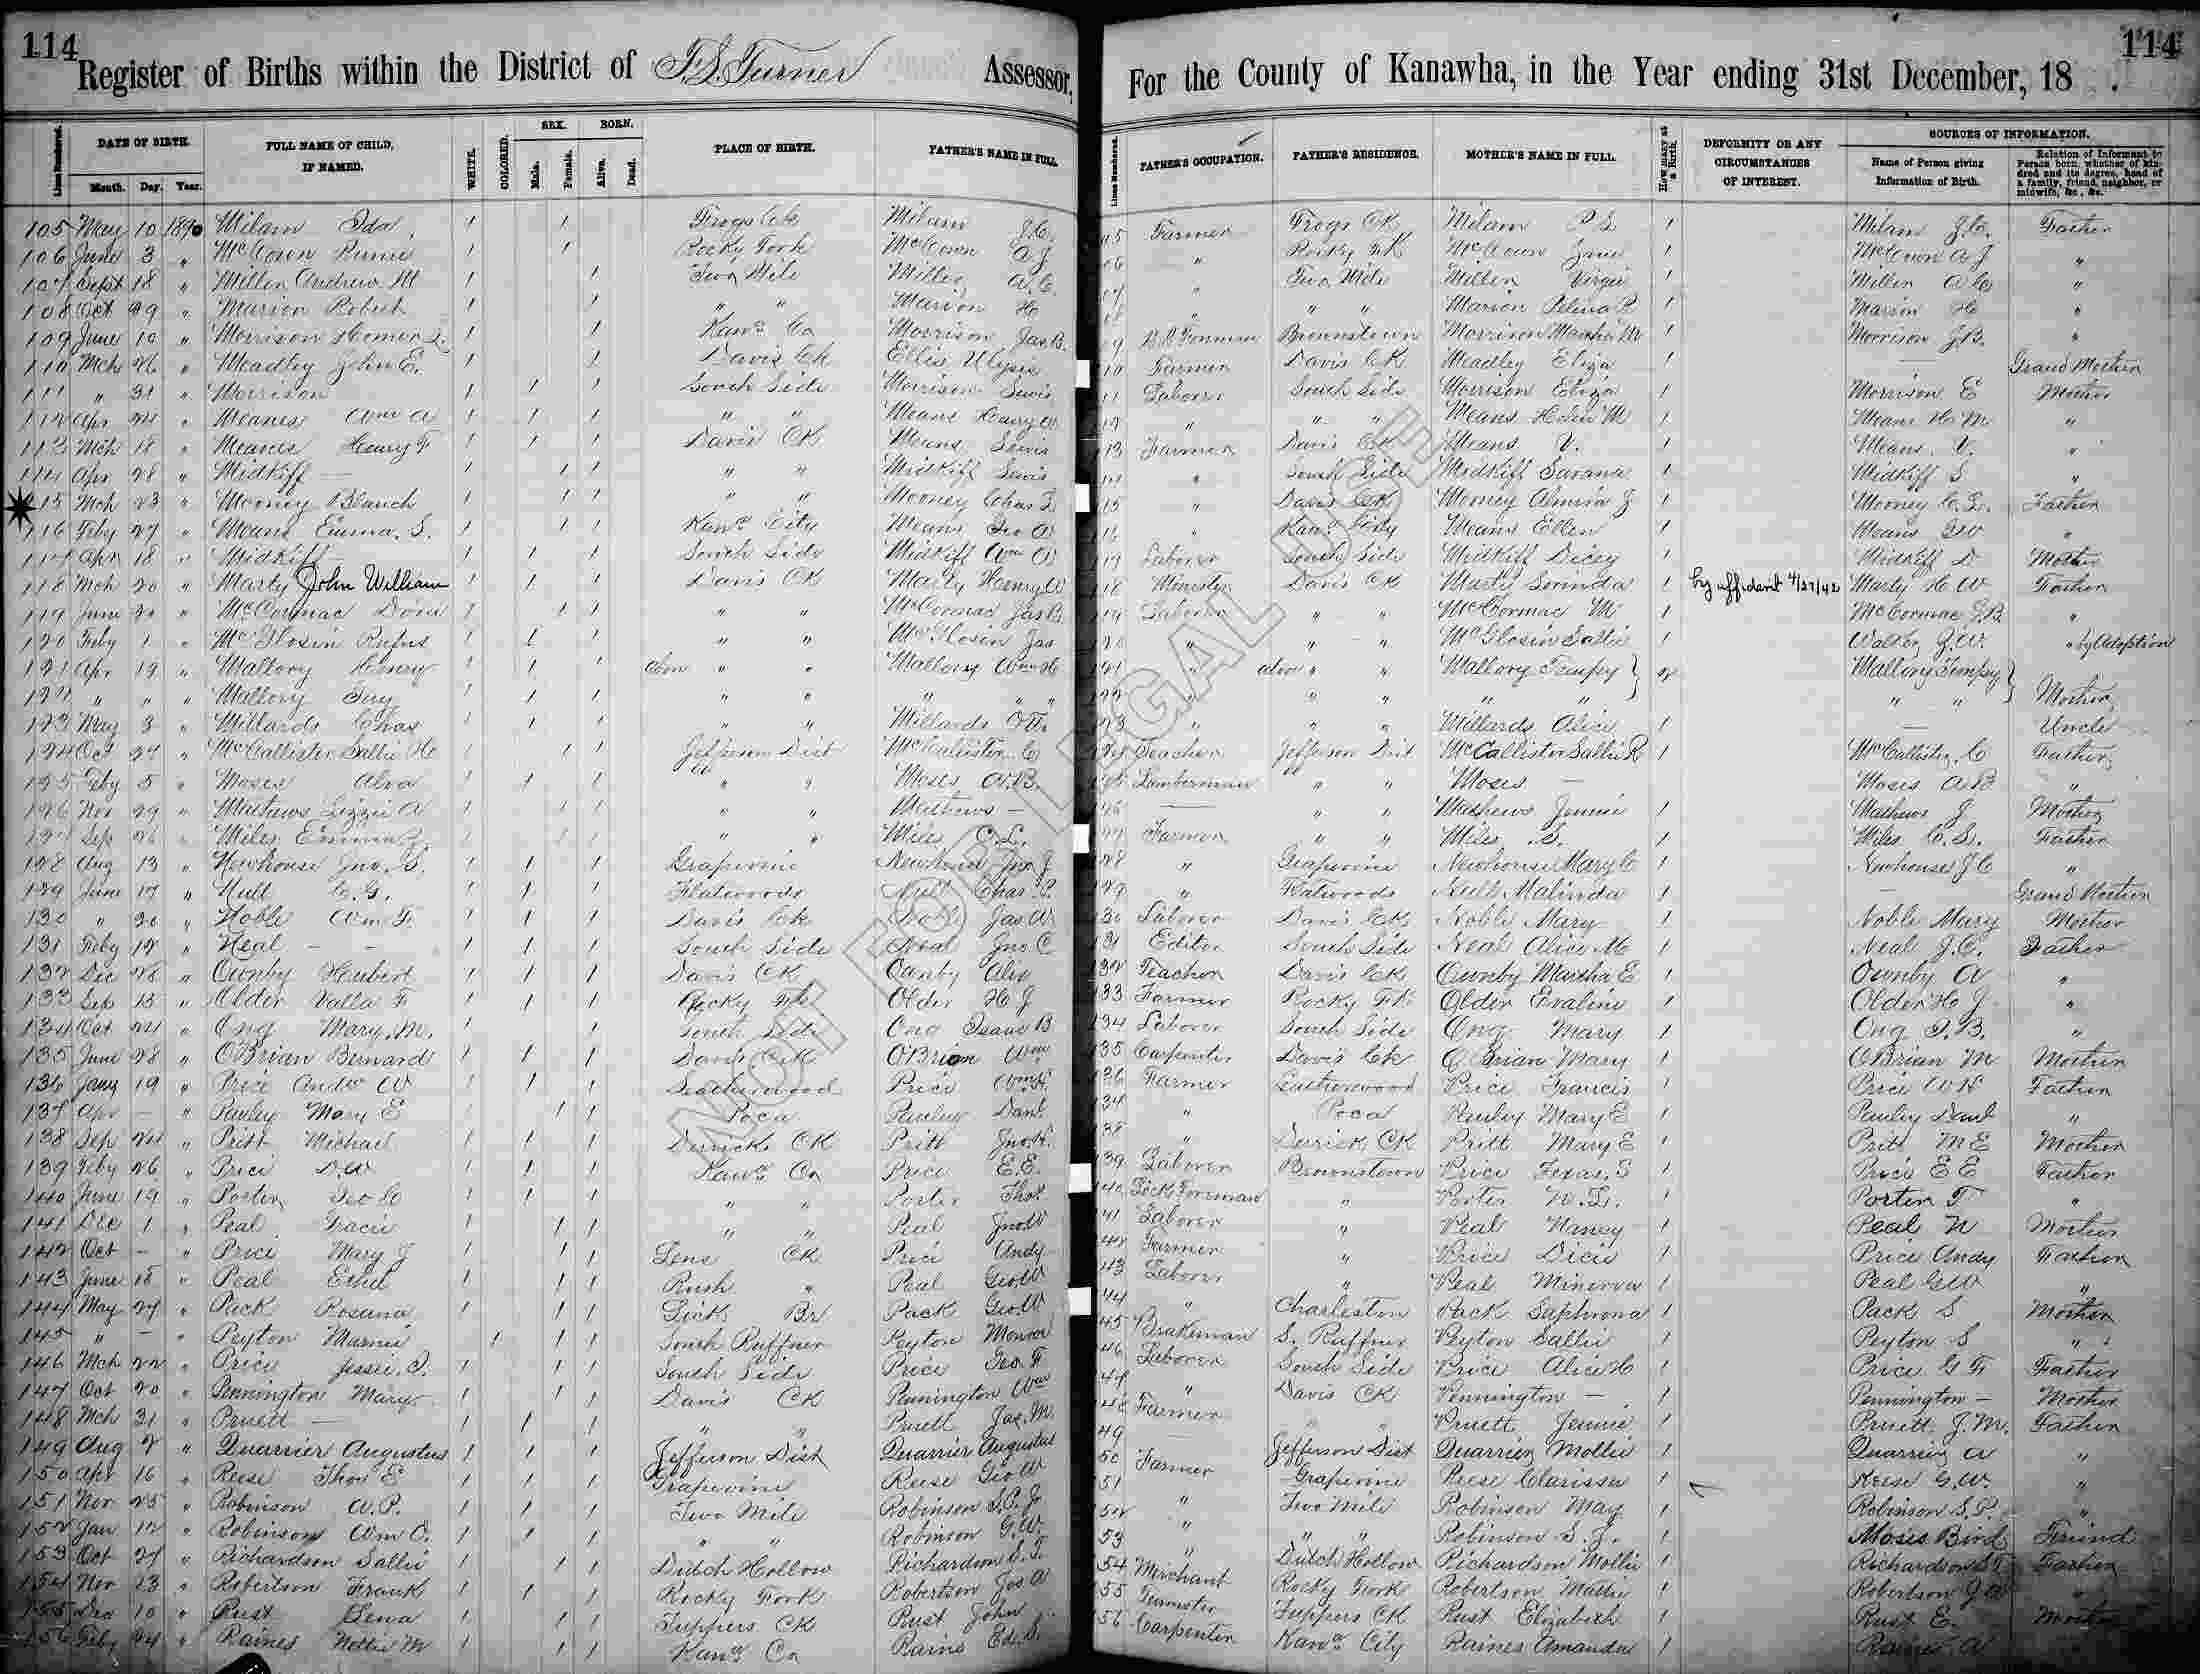 114
Register of Births within the District of F.S. Turner Assessor, For the County of Kanawha, in the Year ending 31st December, 18 .
114
Lines Numbered. DATE OF BIRTH. Month. Day. Year. FULL NAME OF CHILD, IF NAMED. WHITE. COLORED. SEX. Male. Female. BORN. Alive. Dead. PLACE OF BIRTH. FATHER'S NAME IN FULL.
Lines Numbered. FATHER'S OCCUPATION. FATHER'S RESIDENCE. MOTHER'S NAME IN FULL. How MANY at a Birth. DEFORMITY OR ANY CIRCUMSTANCES OF INTEREST. SOURCES OF INFORMATION. Name of Person giving Information of Birth. Relation of Informant to Person born, whether of kindred and its degree, head of a family, friend, neighbor, or midwife, &c., &c.
105 May 10 1890 Milam Ida 1 1 Frogs Ck Milam J.C. Farmer Frogs Ck Milam 1 Milam J.C. Father
106 June 3 " McCown 1 1 Rocky Fork McCown A J " Rocky Fk McCown 1 McCown A J "
107 Sept 18 " Miller Andrew M 1 1 Two Mile Miller A.C. " Two Mile Miller 1 Miller A C "
108 Oct 29 " Marion Robert 1 1 " " Marion H " " " Marion 1 Marion H "
109 June 10 " Morrison Homer 1 1 Kanª Co Morrison Jas B. Brownstown Morrison Martha M 1 Morrison J.B. "
110 Mch 26 " Meadley John E. 1 1 Davis Ck Ellis Farmer Davis Ck Meadley Eliza 1 — Grand Mother
111 " 31 " Morrison 1 1 1 South Side Morrison Lewis Laborer South Side Morrison Eliza 1 Morrison E Mother
112 Apr 24 " Means Wm A 1 1 1 " " Means Henry " " " Means Helen M 1 Means H M "
113 Mch 18 " Means Henry F 1 1 1 Davis Ck Means Lewis Farmer Davis Ck Means V. 1 Means V. "
114 Apr 28 " Midkiff — 1 1 1 " " Midkiff Lewis " South Side Midkiff Savana 1 Midkiff S "
115 Mch 23 " Mooney Blanch 1 1 1 " " Mooney Chas " Davis Ck Mooney Almira J 1 Mooney C. Father
116 Feby 27 " Means Emma. S. 1 1 1 Kanª City Means Geo " Kanª City Means Ellen 1 Means "
117 Apr 18 " Midkiff 1 1 1 South Side Midkiff Wm Laborer South Side Midkiff Dicey 1 Midkiff D Mother
118 Mch 20 " Marty John William 1 1 1 Davis Ck Marty Henry W Minister Davis Ck Marty Lorinda 1 by affidavit 4/27/42 Marty H W Father
119 June 20 " McCormac Dora 1 1 1 " " McCormac Jas B. Laborer " " McCormac M 1 McCormac J.B. "
120 Feby 1 " McGlosin Rufus 1 1 1 " " McGlosin Jas " " " McGlosin Sallie 1 Walker G.W. " by Adoption
121 Apr 19 " Mallory Henry 1 1 1 " " Mallory Wm H " " " Mallory Tempy } 2 Mallory Tempy }
122 " " " Mallory 1 1 1 " " " " " " " " " " Mother
123 May 3 " Millards Chas 1 1 1 " " Millards " " " Millards Alice 1 — Uncle
124 Oct 27 " McCallister Sallie 1 1 1 Jefferson Dist McCallister C Teacher Jefferson Dist McCallister Sallie R 1 McCallister C Father
125 Feby 5 " Moses Alva 1 1 1 " " Moses A.B. Lumberman " " Moses — Moses A B "
126 Nov 29 " Mathews Lizzie A 1 1 1 " " Mathews — — " " Mathews Jennie 1 Mathews J Mother
127 Sep 26 " Miles Emma 1 1 1 " " Miles C.L. Farmer " " Miles S. 1 Miles C.L. Father
128 Aug 13 " Newhouse Jno. S. 1 1 1 Grapevine Newhouse Jno. J " Grapevine Newhouse Mary C 1 Newhouse J C "
129 June 17 " Null C.G. 1 1 1 Flatwoods Null Chas. P. " Flatwoods Null Malinda 1 — Grand Mother
130 " 20 " Noble Wm F. 1 1 1 Davis Ck Noble Jas W Laborer Davis Ck Noble Mary 1 Noble Mary Mother
131 Feby 12 " Neal — — 1 1 1 South Side Neal Jno C Editor South Side Neal Alice M 1 Neal J.C. Father
132 Dec 28 " Ownby Hubert 1 1 1 Davis Ck Ownby Teacher Davis Ck Ownby Martha E 1 Ownby A "
133 Sep 13 " Older Valla F 1 1 1 Rocky Fk Older H J Farmer Rocky Fk Older Evaline 1 Older H J "
134 Oct 24 " Ong Mary. M. 1 1 South Side Ong Isaac B Laborer South Side Ong Mary 1 Ong I.B. "
135 June 28 " OBrian Bernard 1 1 1 Davis Ck OBrian Wm Carpenter Davis Ck OBrian Mary 1 OBrian M Mother
136 Jany 19 " Price Andw W 1 1 1 Leatherwood Price Wm Farmer Leatherwood Price Francis 1 Price W Father
137 Apr — " Pauley Mary E 1 1 1 Poca Pauley Danl " Poca Pauley Mary E 1 Pauley Danl "
138 Sep 24 " Pritt Michael 1 1 1 Derricks Ck Pritt Jno " Derrick Ck Pritt Mary E 1 Pritt M E Mother
139 Feby 26 " Price D.W 1 1 1 Kanª Co Price E.E. Laborer Brownstown Price Texas. S 1 Price E E Father
140 June 19 " Porter Geo C 1 1 1 " " Porter Thos Lock Foreman " Porter 1 Porter T "
141 Dec 1 " Peal Gracie 1 1 1 " " Peal Jno W Laborer " Peal Nancy 1 Peal N Mother
142 Oct — " Price Mary J 1 1 1 Lens Ck Price Andy Farmer " Price Dicie 1 Price Andy Father
143 June 18 " Peal Ethel 1 1 1 Rush " Peal Geo W Laborer " Peal Minerva 1 Peal G W "
144 May 27 " Pack Rosana 1 1 1 Lick Br Pack Geo W " Charleston Pack Saphrona 1 Pack S Mother
145 " — " Peyton Mamie 1 1 1 South Ruffner Peyton Monroe Brakeman S. Ruffner Peyton Sallie 1 Peyton S "
146 Mch 22 " Price Jesse. 1 1 1 South Side Price Geo F Laborer South Side Price Alice 1 Price G F Father
147 Oct 20 " Pennington Mary 1 1 1 Davis Ck Pennington Wm " Davis Ck Pennington — 1 Pennington — Mother
148 Mch 31 " Pruett — 1 1 1 " " Pruett Jas. M. Farmer " " Pruett Jennie 1 Pruett J.M. Father
149 Aug 2 " Quarrier Augustus 1 1 1 Jefferson Dist Quarrier Augustus — Jefferson Dist Quarrier Mollie 1 Quarrier A "
150 Apr 16 " Reese Thos E 1 1 1 Grapevine Reese Geo W Farmer Grapevine Reese Clarissa 1 Reese G.W. "
151 Nov 25 " Robinson A.P. 1 1 1 Two Mile Robinson S.P. Jr " Two Mile Robinson May 1 Robinson S.P. "
152 Jan 12 " Robinson Wm O. 1 1 1 " " Robinson G.W. " " " Robinson S.J. 1 Moses Bird Friend
153 Oct 27 " Richardson Sallie 1 1 1 Dutch Hollow Richardson S.T. " Dutch Hollow Richardson Mollie 1 Richardson S T Father
154 Nov 23 " Robertson Frank 1 1 1 Rocky Fork Robertson Jos A Merchant Rocky Fork Robertson Mattie 1 Robertson J A "
155 Dec 10 " Rust Lena 1 1 1 Tuppers Ck Rust John Teamster Tuppers Ck Rust Elizabeth 1 Rust E. Mother
156 Feby 24 " Raines Nollie M 1 1 1 Kanª Co Rains Ed. S. Carpenter Kanª City Raines Amanda 1 Raines A "
NOT FOR LEGAL USE